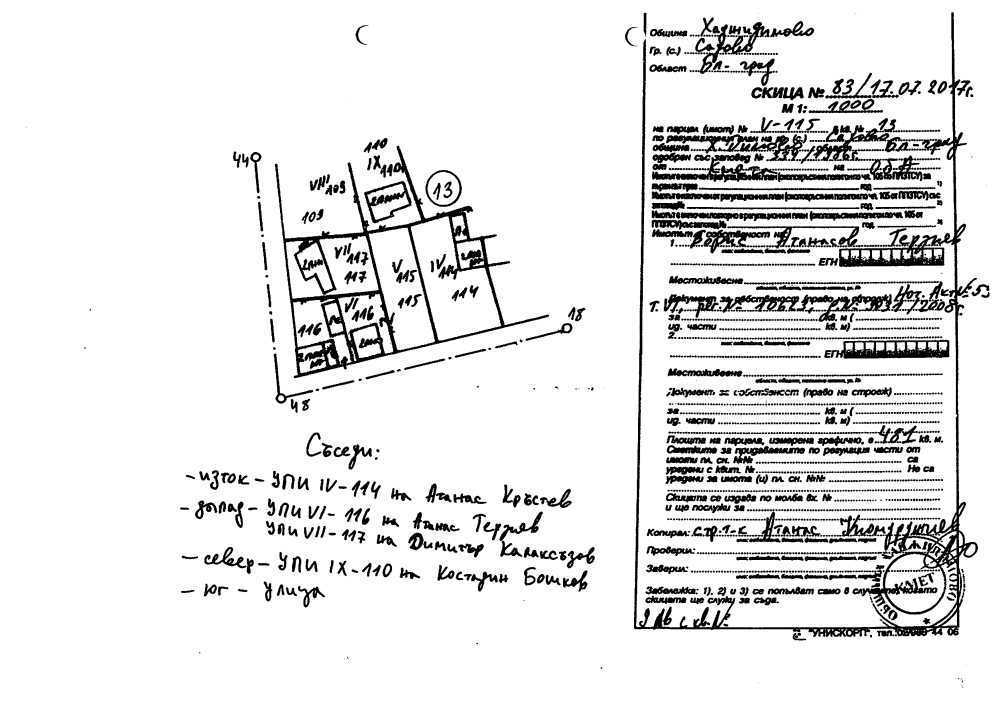 44
48
18
VIII
109
109
110
IX
110
13
VII
117
117
V
115
115
IV
114
114
VI
116
116
Съседи:
- изток - УПИ IV-114 на Атанас Кръстев
- запад - УПИ VI-116 на Атанас Терзиев
УПИ VII-117 на Димитър Калаксъзов
- север - УПИ IX-110 на Костадин Бошков
- юг - Улица
Община Хаджидимово
Гр. (с.) Садово
Област Бл-град
СКИЦА № 83/17.07.2017г.
М 1: 1000
на парцел (имот) № V-115 в кв. № 13
по регулационния план на гр (с.) Садово
община Х. Димово област Бл-град
одобрен със заповед №
от Кмета на ОбА
Имотът е собственост на
1. Борис Атанасов Терзиев
ЕГН
Местоживеене
Документ за собственост (право на строеж) Нот. Акт № 53
т. VI, рег. № 10623, /2008г.
за кв. м (
ид. части кв. м)
2.
ЕГН
Местоживеене
област, община, населено място, ул. №
Документ за собственост (право на строеж)
за кв. м (
ид. части кв. м)
Площта на парцела, измерена графично, е 481 кв. м.
Сметките за придаваемите по регулация части от
имоти пл. сн. №№ са
уредени с квит. № Не са
уредени за имота (и) пл. сн. №№
Скицата се издава по молба вх. №
и ще послужи за
Копирал: стр. т-к Атанас
Проверил:
Заверил:
Забележка: 1), 2) и 3) се попълват само в случаите, когато
скицата ще служи за съда.
КМЕТ
"УНИСКОРП", тел.:02/989 44 06